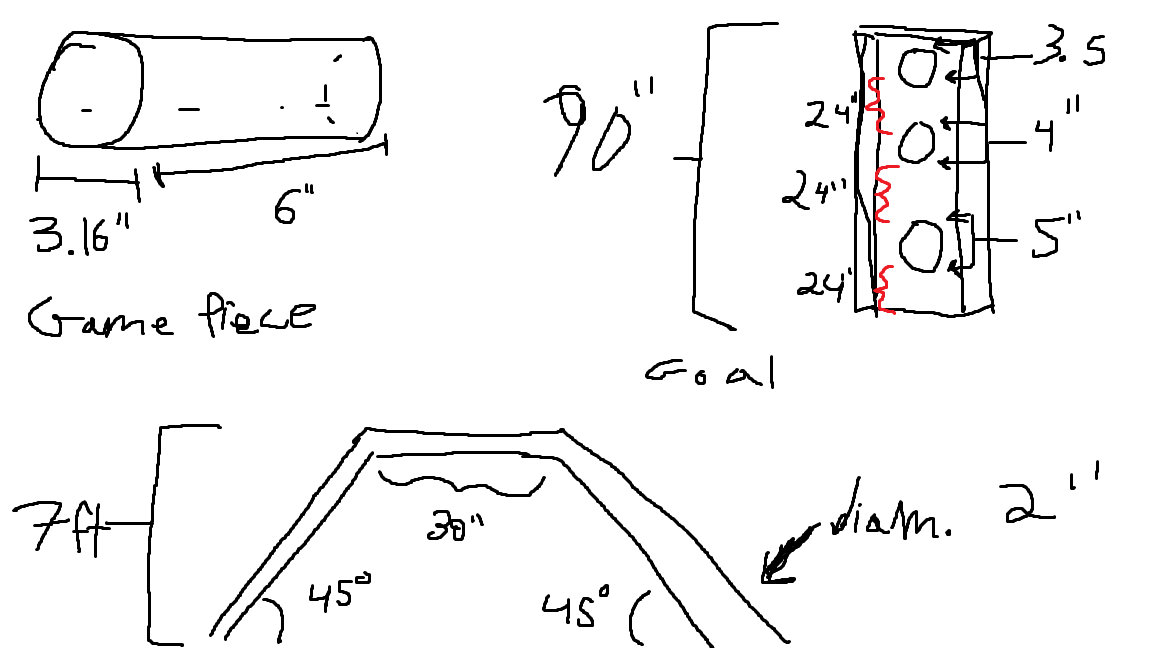 3.16"
6"
Game Piece
90"
24"
24"
24"
3.5
4"
5"
Goal
7ft
30"
45°
45°
diam. 2"